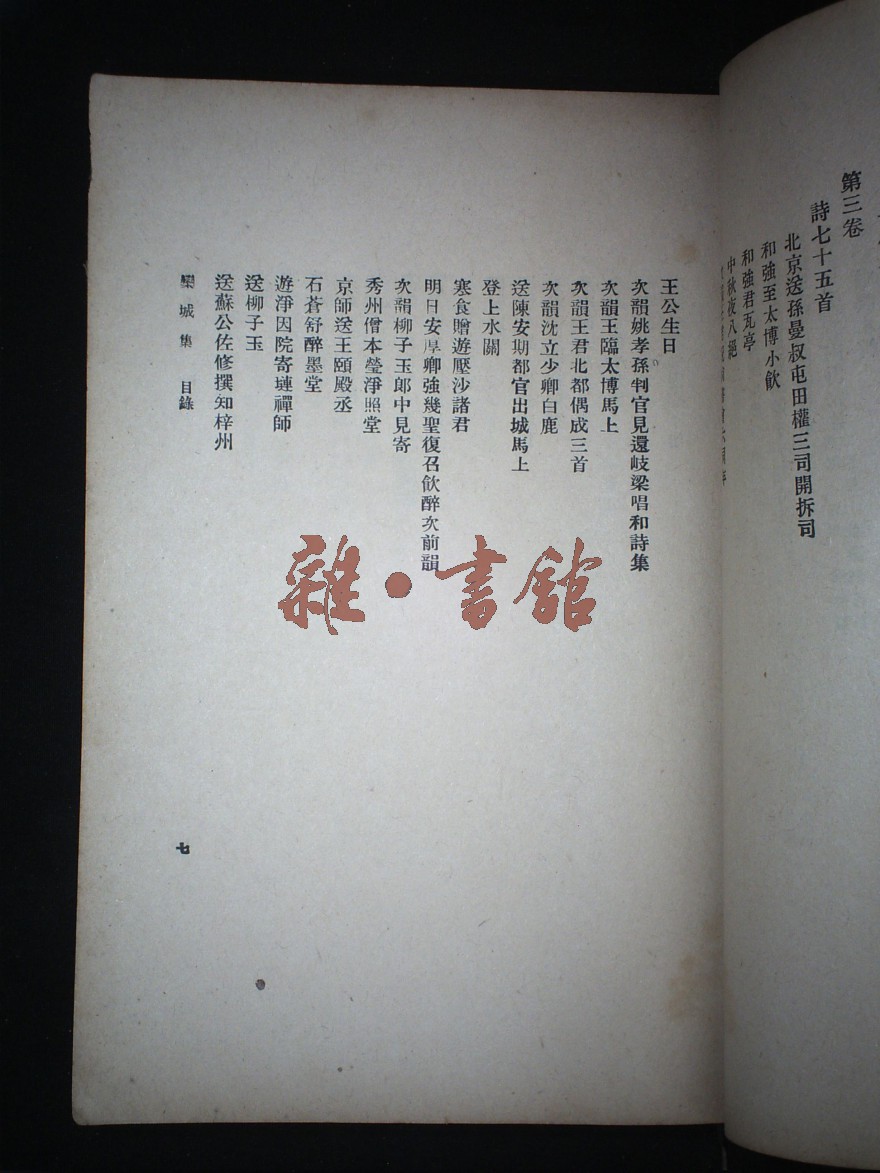 第三卷
詩七十五首
北京送孫曼叔屯田權三司開拆司
和強至太博小飲
和強君瓦亭
中秋夜八絕
王公生日
次韻姚孝孫判官見還岐梁唱和詩集
次韻王臨太博馬上
次韻王君北都偶成三首
次韻沈立少卿白鹿
送陳安期都官出城馬上
登上水關
寒食贈遊壓沙諸君
明日安厚卿強幾聖復召飲醉次前韻
次韻柳子玉郎中見寄
秀州僧本瑩淨照堂
京師送王頤殿丞
石蒼舒醉墨堂
遊淨因院寄璉禪師
送柳子玉
送蘇公佐修撰知梓州
欒城集 目錄
七
雜·書館